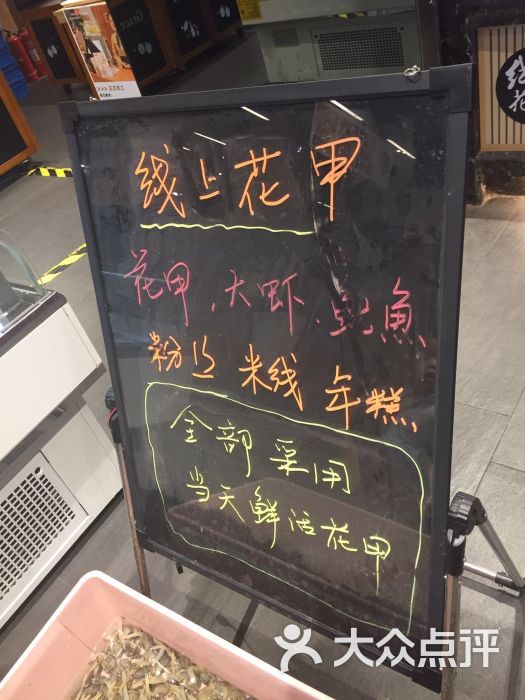 线上花甲
花甲、大虾、鱿鱼
粉丝 米线 年糕
全部采用
当天鲜活花甲
线
花
大众点评